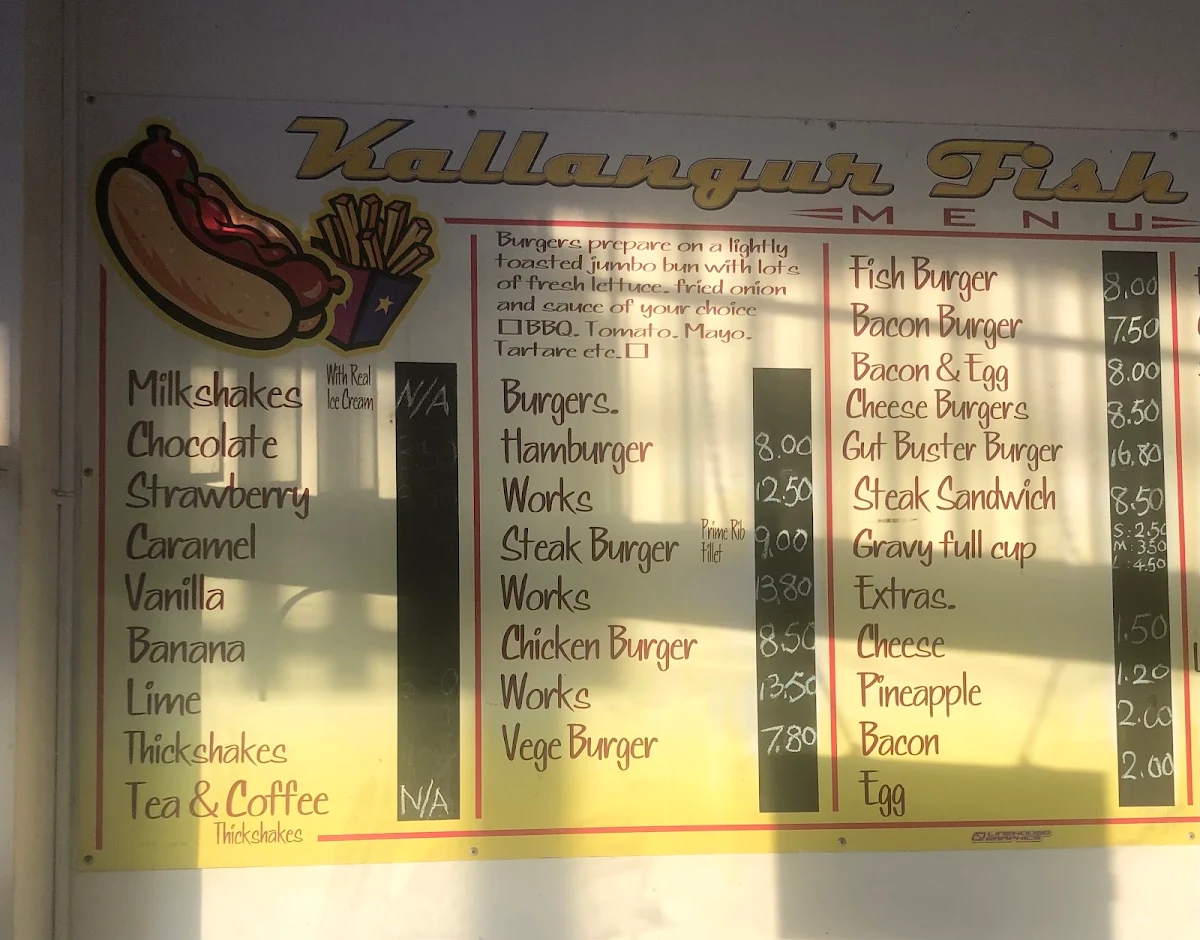 Kallangur Fish
MENU
Milkshakes With Real Ice Cream N/A
Chocolate
Strawberry
Caramel
Vanilla
Banana
Lime
Thickshakes
Tea & Coffee N/A
Thickshakes
Burgers prepare on a lightly
toasted jumbo bun with lots
of fresh lettuce. fried onion
and sauce of your choice
BBQ. Tomato. Mayo.
Tartare etc.
Burgers.
Hamburger 8.00
Works 12.50
Steak Burger Prime Rib Fillet 9.00
Works 13.80
Chicken Burger 8.50
Works 13.50
Vege Burger 7.80
Fish Burger 8.00
Bacon Burger 7.50
Bacon & Egg 8.00
Cheese Burgers 8.50
Gut Buster Burger 16.80
Steak Sandwich 8.50
Gravy full cup S:2.50 M:3.50 L:4.50
Extras.
Cheese 1.50
Pineapple 1.20
Bacon 2.00
Egg 2.00
LINEHOUSE
GRAPHICS